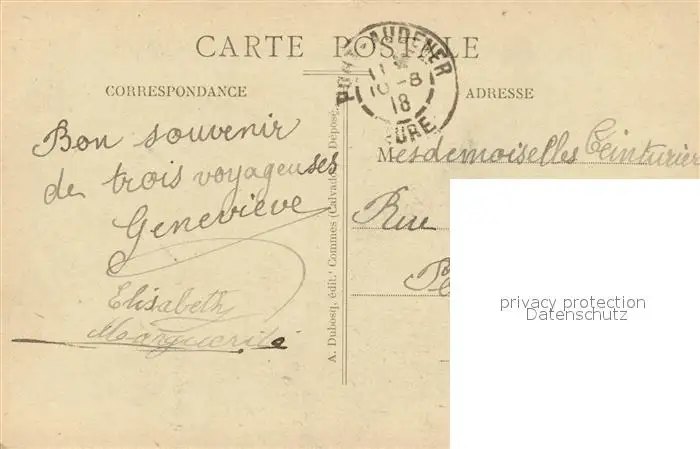 CARTE POSTALE
PONT-AUDEMER
11
10-8
18
EURE
CORRESPONDANCE
ADRESSE
Bon souvenir
de trois voyageuses
Geneviève
Elisabeth
Marguerite
A. Dubosq, édit.r Commes (Calvados) Déposé.
Mesdemoiselles Ceinturier
Rue
privacy protection
Datenschutz